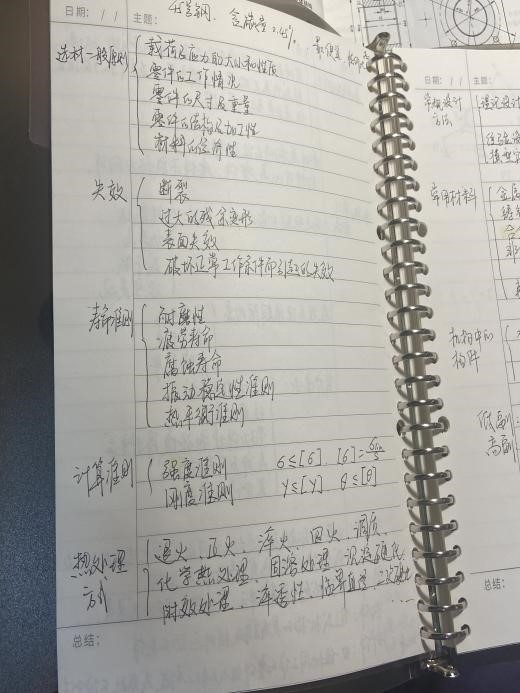 日期： / / 主题：
45号钢，含碳量0.45%
选材一般原则
载荷及应力的大小和性质
零件的工作情况
零件的尺寸及重量
零件的结构及加工性
材料的经济性
失效
断裂
过大的残余变形
表面失效
破坏正常工作条件而引起的失效
寿命准则
耐磨性
疲劳寿命
腐蚀寿命
振动稳定性准则
热平衡准则
计算准则
强度准则 σ≤[σ]. [σ]=σlim/S
刚度准则 y≤[y] θ≤[θ]
热处理方式
退火、正火、淬火、回火、调质、
化学热处理、固溶处理、沉淀硬化
时效处理、淬透性、临界直径、二次硬化
总结：
日期： / / 主题：
常规设计方法
理论设计
经验设
模型
常用材料
金属
铸
合
非
机构中的构件
低副
高副
总结：